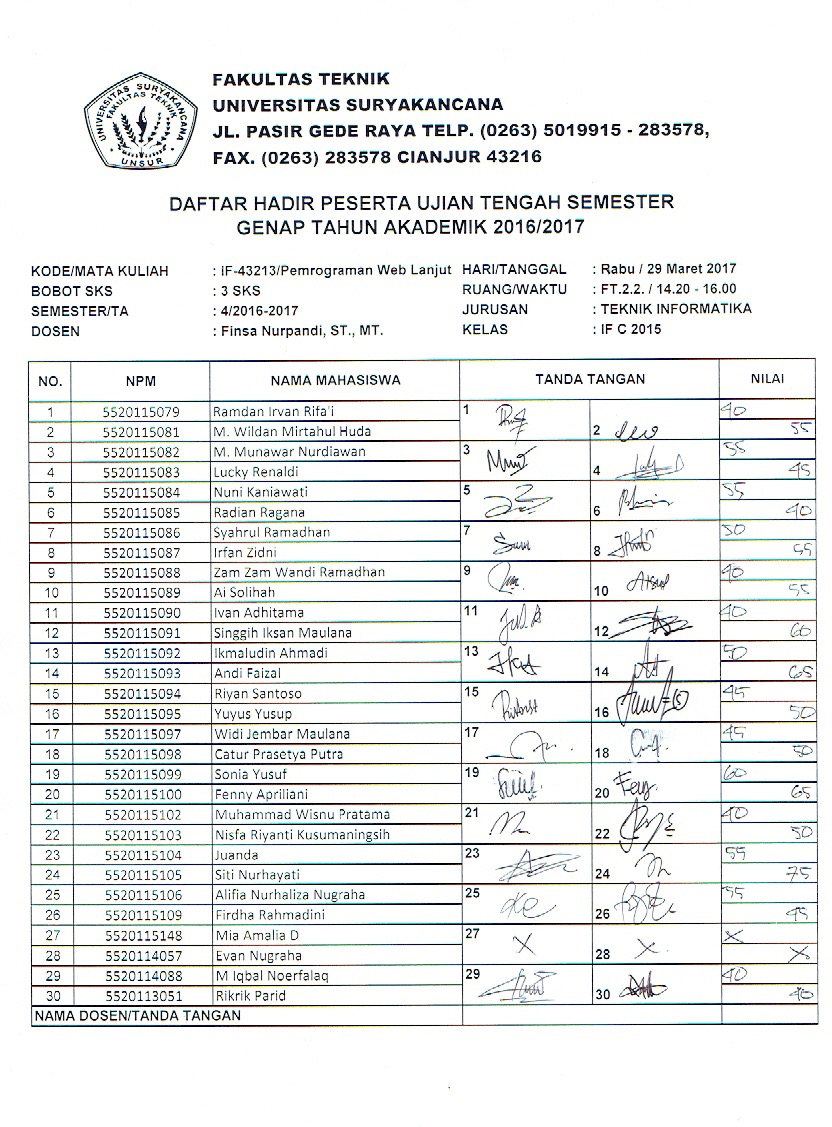 UNIVERSITAS SURYAKANCANA
FAKULTAS TEKNIK
UNSUR
FAKULTAS TEKNIK
UNIVERSITAS SURYAKANCANA
JL. PASIR GEDE RAYA TELP. (0263) 5019915 - 283578,
FAX. (0263) 283578 CIANJUR 43216
DAFTAR HADIR PESERTA UJIAN TENGAH SEMESTER
GENAP TAHUN AKADEMIK 2016/2017
KODE/MATA KULIAH : IF-43213/Pemrograman Web Lanjut HARI/TANGGAL : Rabu / 29 Maret 2017
BOBOT SKS : 3 SKS RUANG/WAKTU : FT.2.2. / 14.20 - 16.00
SEMESTER/TA : 4/2016-2017 JURUSAN : TEKNIK INFORMATIKA
DOSEN : Finsa Nurpandi, ST., MT. KELAS : IF C 2015
NO. NPM NAMA MAHASISWA TANDA TANGAN NILAI
1 5520115079 Ramdan Irvan Rifa'i 1 40
2 5520115081 M. Wildan Mirtahul Huda 2 55
3 5520115082 M. Munawar Nurdiawan 3 55
4 5520115083 Lucky Renaldi 4 45
5 5520115084 Nuni Kaniawati 5 55
6 5520115085 Radian Ragana 6 40
7 5520115086 Syahrul Ramadhan 7 50
8 5520115087 Irfan Zidni 8 55
9 5520115088 Zam Zam Wandi Ramadhan 9 40
10 5520115089 Ai Solihah 10 55
11 5520115090 Ivan Adhitama 11 40
12 5520115091 Singgih Iksan Maulana 12 60
13 5520115092 Ikmaludin Ahmadi 13 50
14 5520115093 Andi Faizal 14 65
15 5520115094 Riyan Santoso 15 45
16 5520115095 Yuyus Yusup 16 50
17 5520115097 Widi Jembar Maulana 17 45
18 5520115098 Catur Prasetya Putra 18 50
19 5520115099 Sonia Yusuf 19 60
20 5520115100 Fenny Apriliani 20 Feny 65
21 5520115102 Muhammad Wisnu Pratama 21 40
22 5520115103 Nisfa Riyanti Kusumaningsih 22 50
23 5520115104 Juanda 23 55
24 5520115105 Siti Nurhayati 24 75
25 5520115106 Alifia Nurhaliza Nugraha 25 55
26 5520115109 Firdha Rahmadini 26 45
27 5520115148 Mia Amalia D 27 X X
28 5520114057 Evan Nugraha 28 X X
29 5520114088 M Iqbal Noerfalaq 29 40
30 5520113051 Rikrik Parid 30 40
NAMA DOSEN/TANDA TANGAN